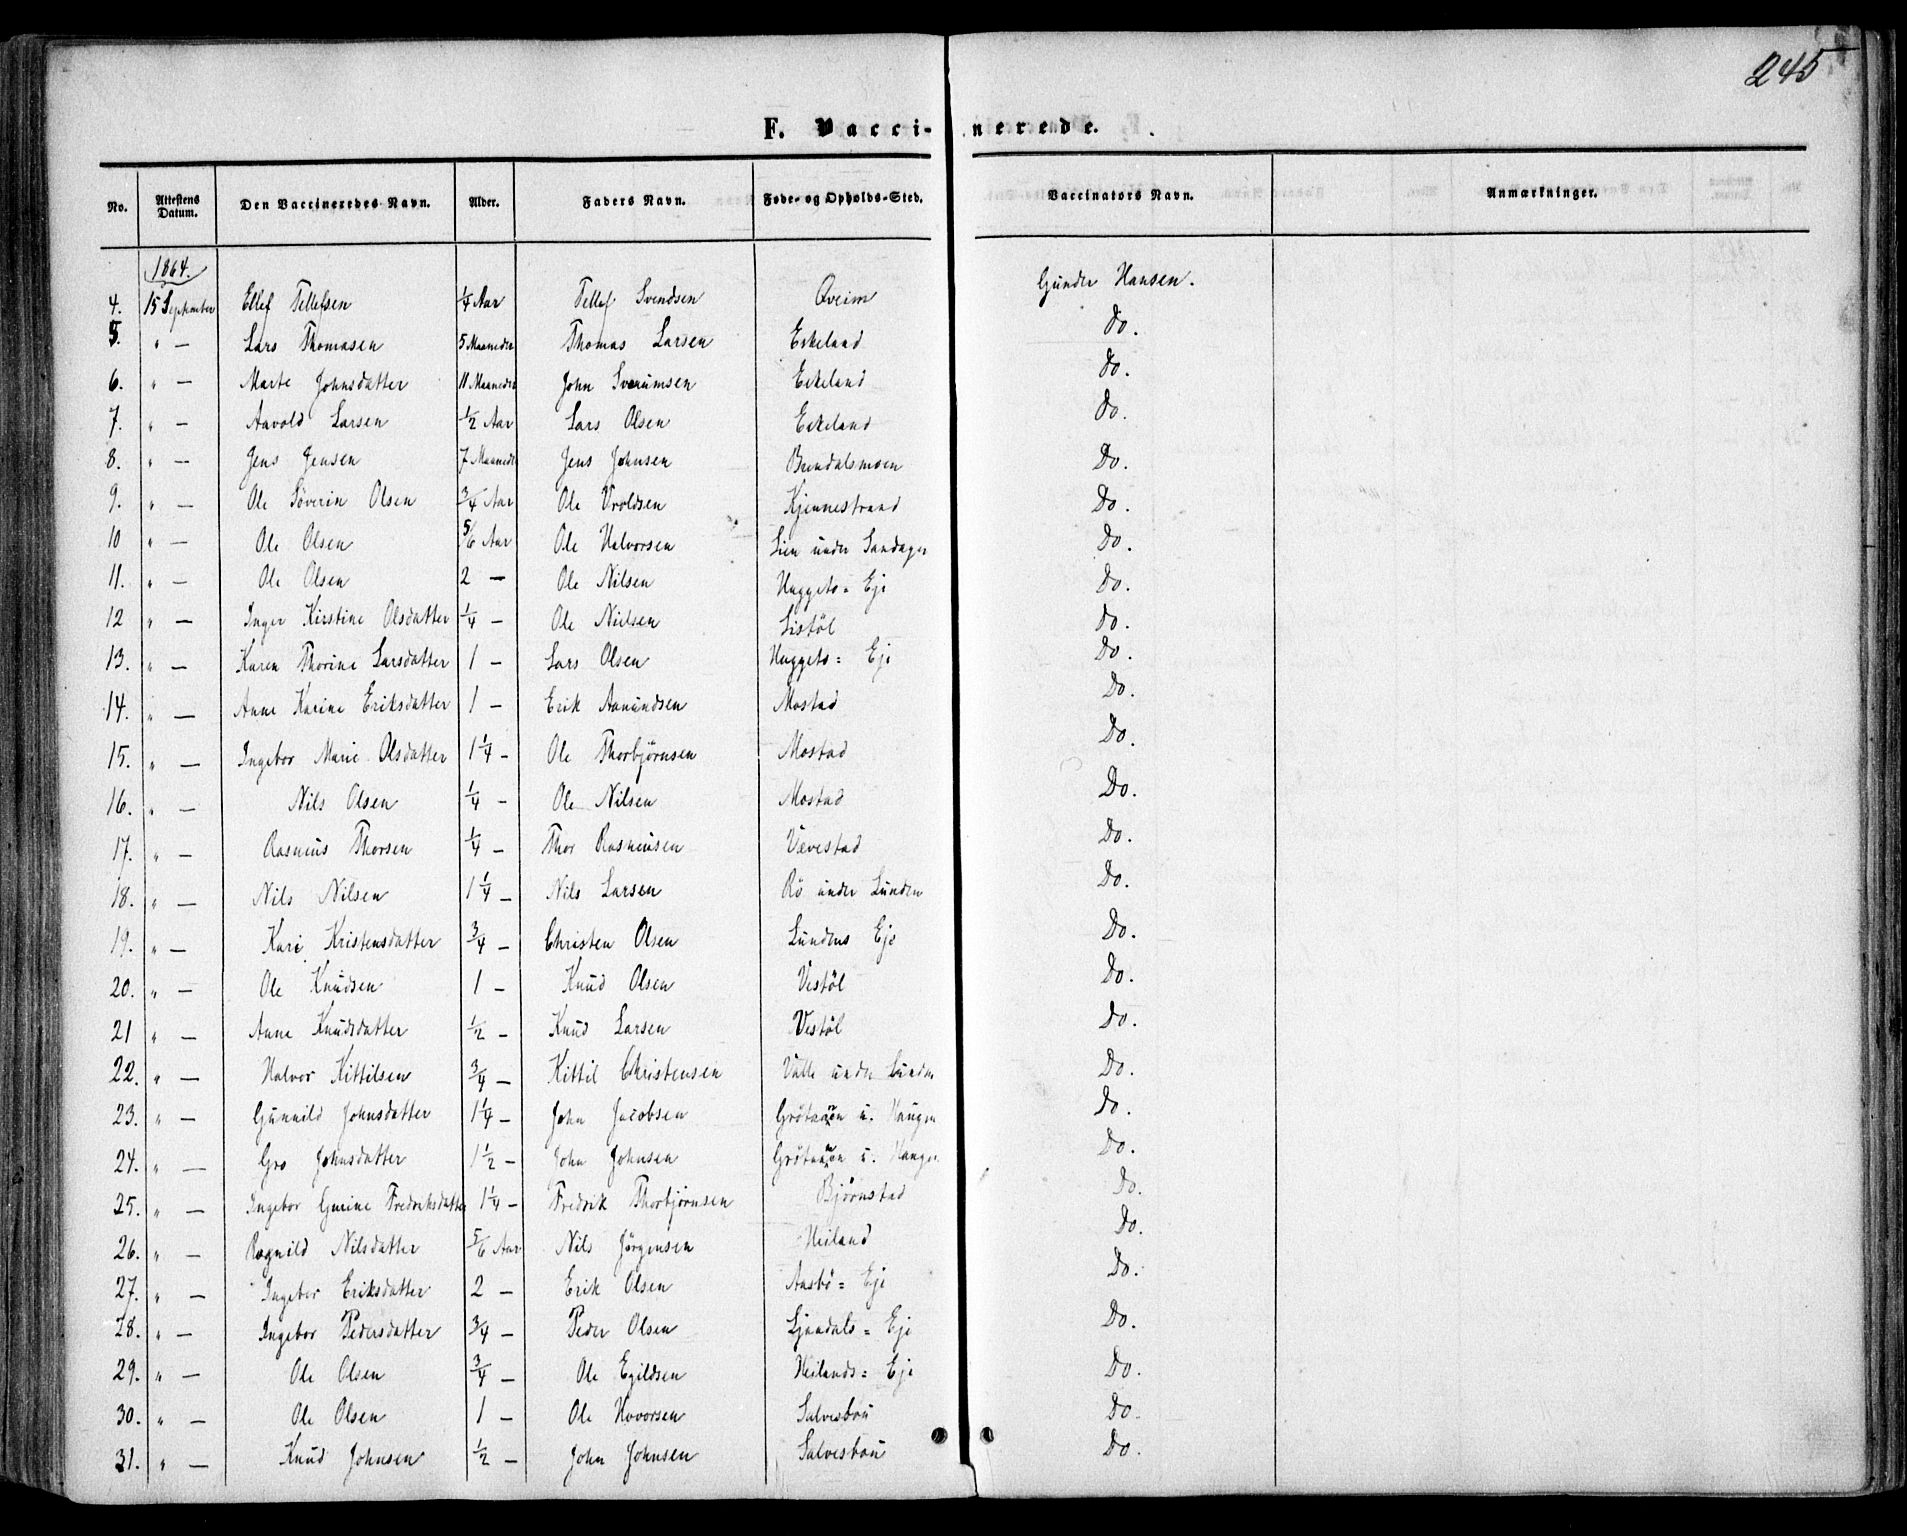 245
F. Vaccinerede.
No. | Attestens Datum. | Den Vaccineredes Navn. | Alder. | Faders Navn. | Føde- og Opholds-Sted. | Vaccinators Navn. | Anmærkninger.
1864.
4. | 15 September | Ellef Tellefsen | 1/4 Aar | Tellef Svendsen | Oveim | Gunder Hansen.
5. | " — | Lars Thomasen | 5 Maaneder | Thomas Larsen | Eskeland | Do.
6. | " — | Marte Johnsdatter | 11 Maaneder | John | Eskeland | Do.
7. | " — | Aavold Larsen | 1/2 Aar | Lars Olsen | Eskeland | Do.
8. | " — | Jens Jensen | 7 Maaneder | Jens Johnsen | Brendalsmoen | Do.
9. | " — | Ole Söverin Olsen | 3/4 Aar | Ole Uroldsen | Kjennestrand | Do.
10 | " — | Ole Olsen | 5/6 Aar | Ole Halvorsen | Lien under Sandager | Do.
11. | " — | Ole Olsen | 2 — | Ole Nilsen | Haggets- Eje | Do.
12 | " — | Inger Kirstine Olsdatter | 1/4 — | Ole Nielsen | Listöl | Do.
13. | " — | Karen Thorine Larsdatter | 1 — | Lars Olsen | Haggets= Eje | Do.
14. | " — | Anne Karine Eriksdatter | 1 — | Erik Aanundsen | Mostad | Do.
15. | " — | Ingebor Marie Olsdatter | 1 1/4 — | Ole Thorbjørnsen | Mostad | Do.
16. | " — | Nils Olsen | 1/4 — | Ole Nilsen | Mostad | Do.
17. | " — | Rasmus Thorsen | 1/4 — | Thor Rasmusen | Vævestad | Do.
18. | " — | Nils Nilsen | 1 1/4 — | Nils Larsen | Rö under Lunden | Do.
19. | " — | Kari Kristensdatter | 3/4 — | Christen Olsen | Lundens Eje | Do.
20. | " — | Ole Knudsen | 1 — | Knud Olsen | Vestöl | Do.
21 | " — | Anne Knudsdatter | 1/2 — | Knud Larsen | Vestöl | Do.
22. | " — | Halvor Kittilsen | 3/4 — | Kittil Christensen | Valle under Lunden | Do.
23. | " — | Gunnild Johnsdatter | 1 1/4 — | John Jacobsen | u. Haugen | Do.
24. | " — | Gro Johnsdatter | 1 1/2 — | John Johnsen | u. Haugen | Do.
25. | " — | Ingebor Gurine Fredriksdatter | 1 1/4 — | Fredrik Thorbjørnsen | Bjørnstad | Do.
26. | " — | Ragnild Nilsdatter | 5/6 Aar | Nils Jörgensen | Heiland | Do.
27. | " — | Ingebor Eriksdatter | 2 — | Erik Olsen | Aasbö= Eje | Do.
28. | " — | Ingebor Pedersdatter | 3/4 — | Peder Olsen | Ljandals= Eje | Do.
29. | " — | Ole Olsen | 3/4 — | Ole Egildsen | Heilands= Eje | Do.
30. | " — | Ole Olsen | 1 — | Ole Hovorsen | Salvesbou | Do.
31. | " — | Knud Johnsen | 1/2 — | John Johnsen | Salvesbou | Do.